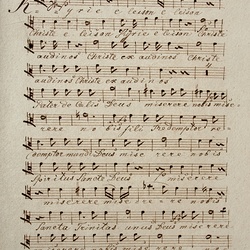 Kyrie eleison eleison
Christe eleison Kyrie eleison Christe
audi nos Christe ex audi nos Christe
audi nos Christe ex audi nos
Pater de Celis Deus miserere nobis mise-
rere no bis fili Redemptor re-
demptor mundi Deus mise rere nobis
Spiritus Sancte Deus miserere
miserere miserere nobis
Sancta Trinitas unus Deus miserere